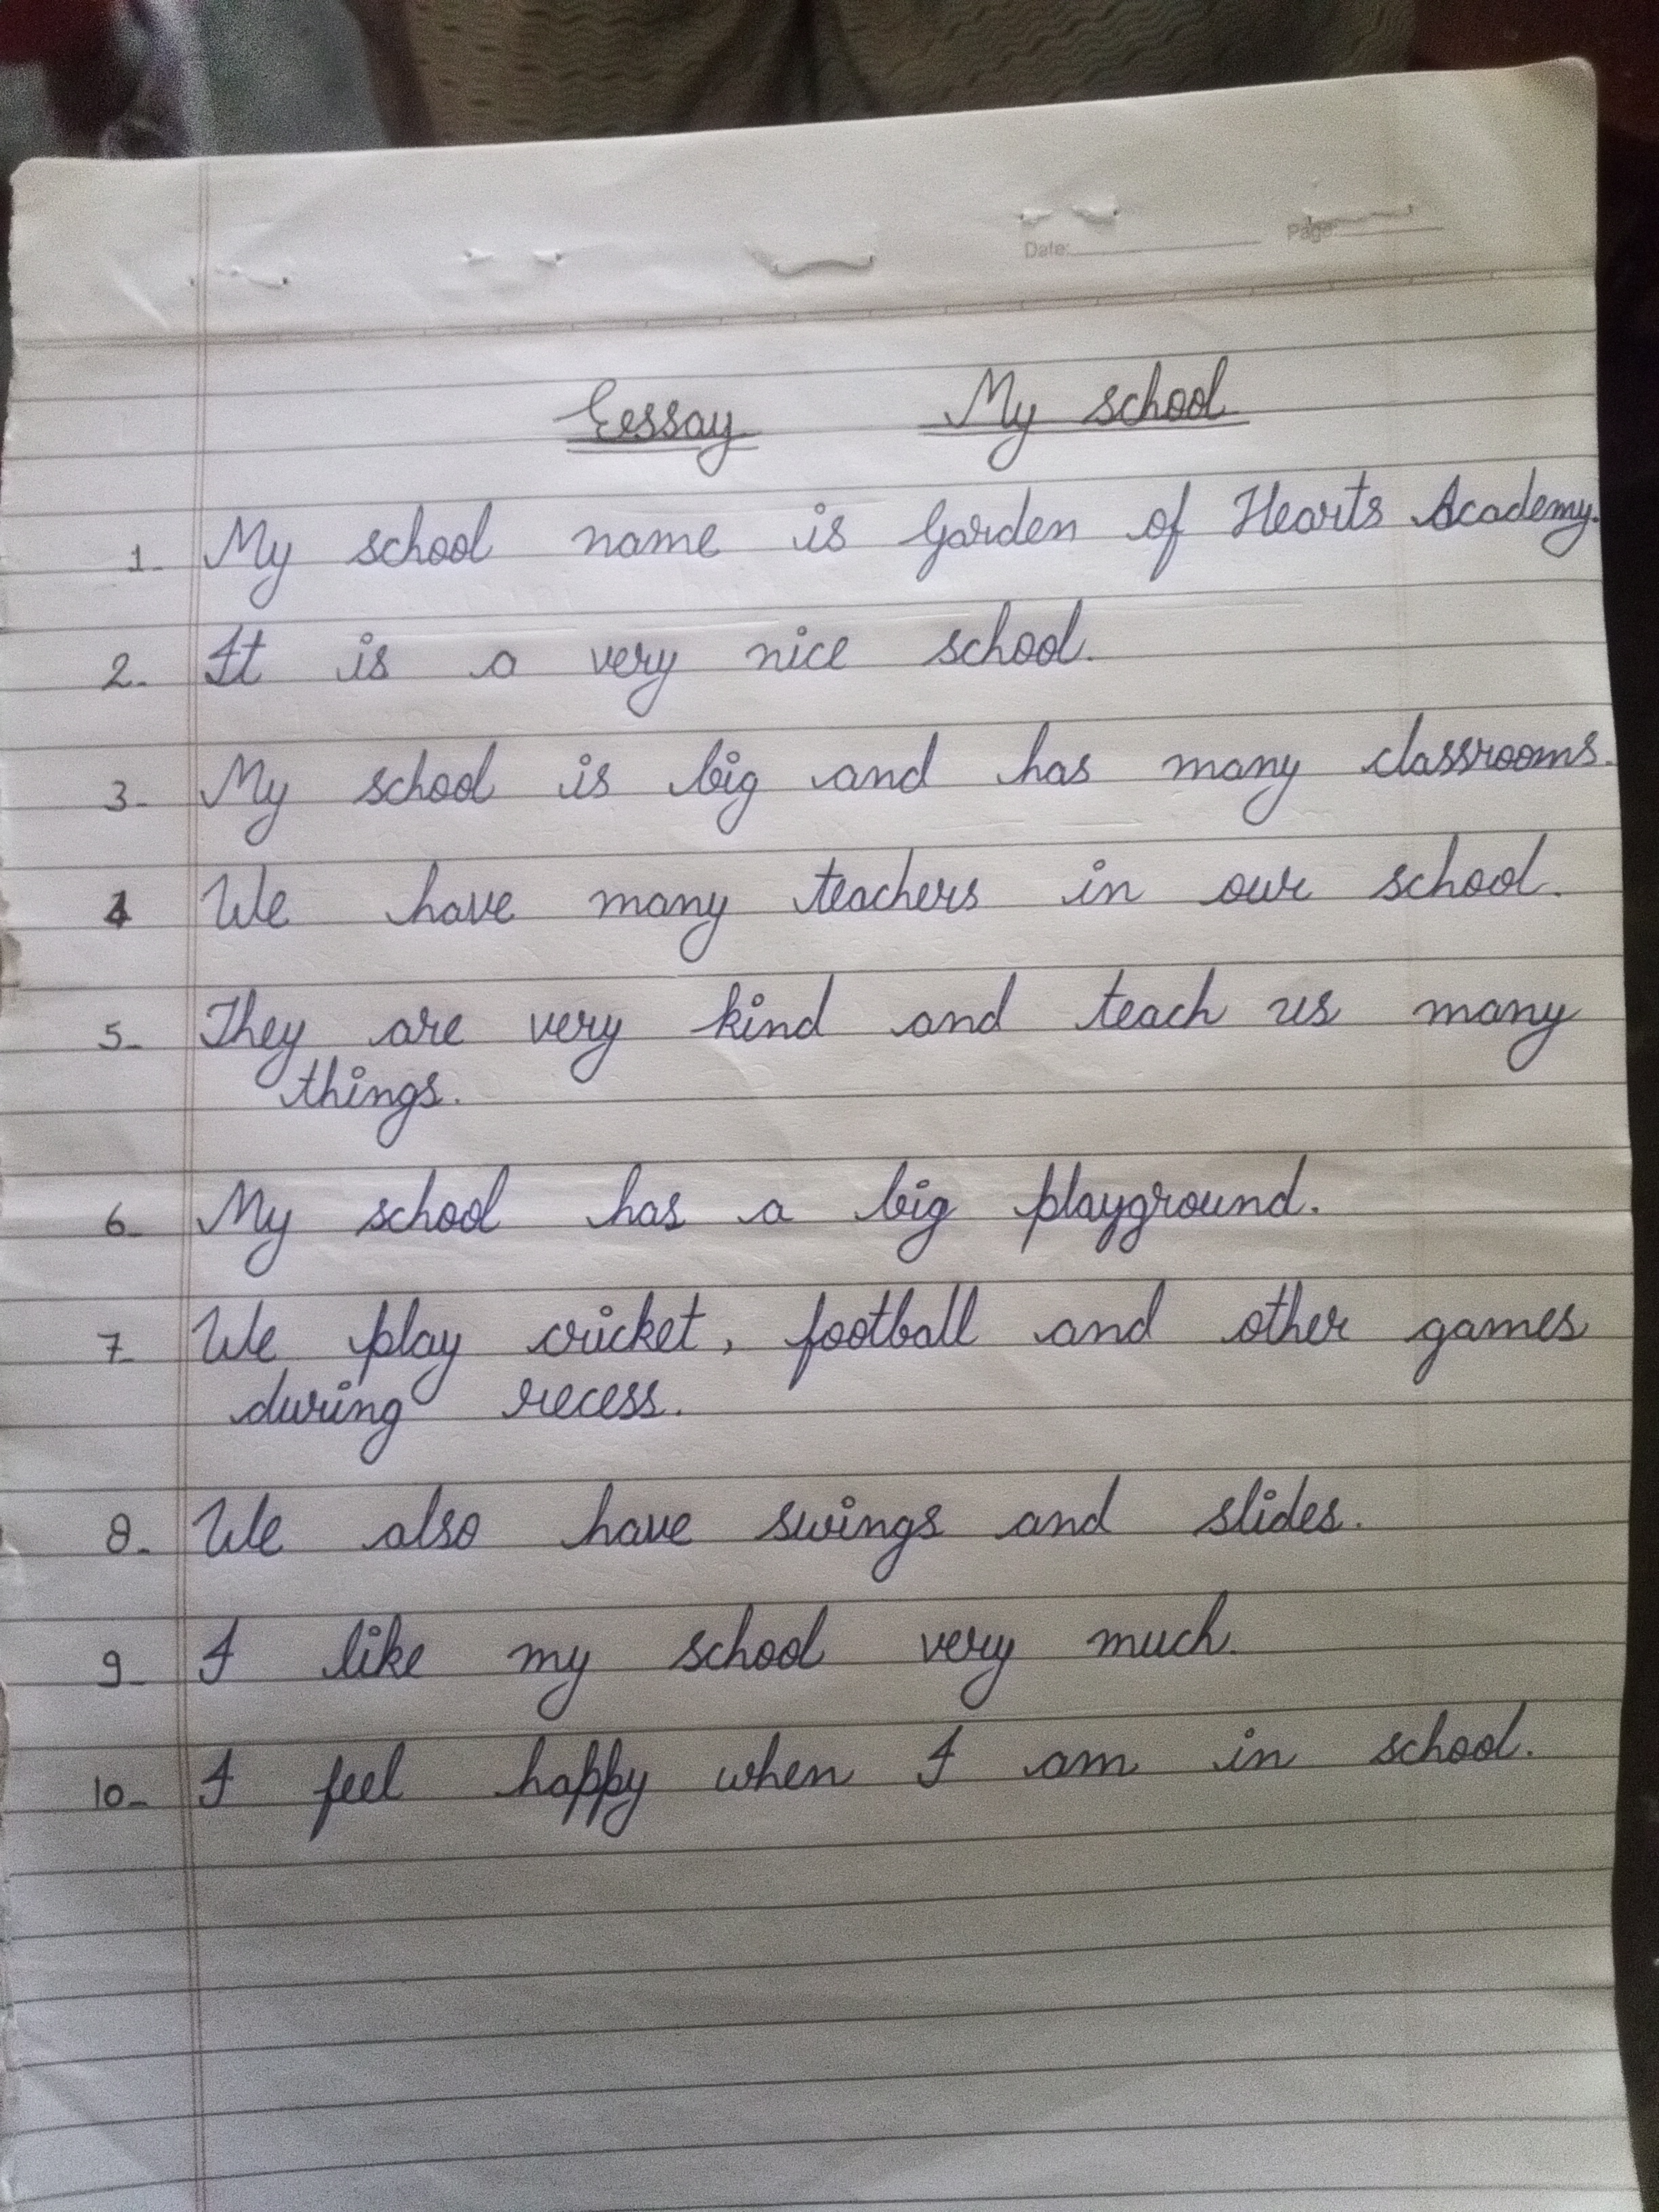 Date: Page:
Eessay My school
1. My school name is Garden of Hearts Academy.
2. It is a very nice school.
3. My school is big and has many classrooms.
4 We have many teachers in our school.
5. They are very kind and teach us many
things.
6. My school has a big playground.
7. We play cricket, football and other games
during recess.
8. We also have swings and slides.
9. I like my school very much.
10. I feel happy when I am in school.